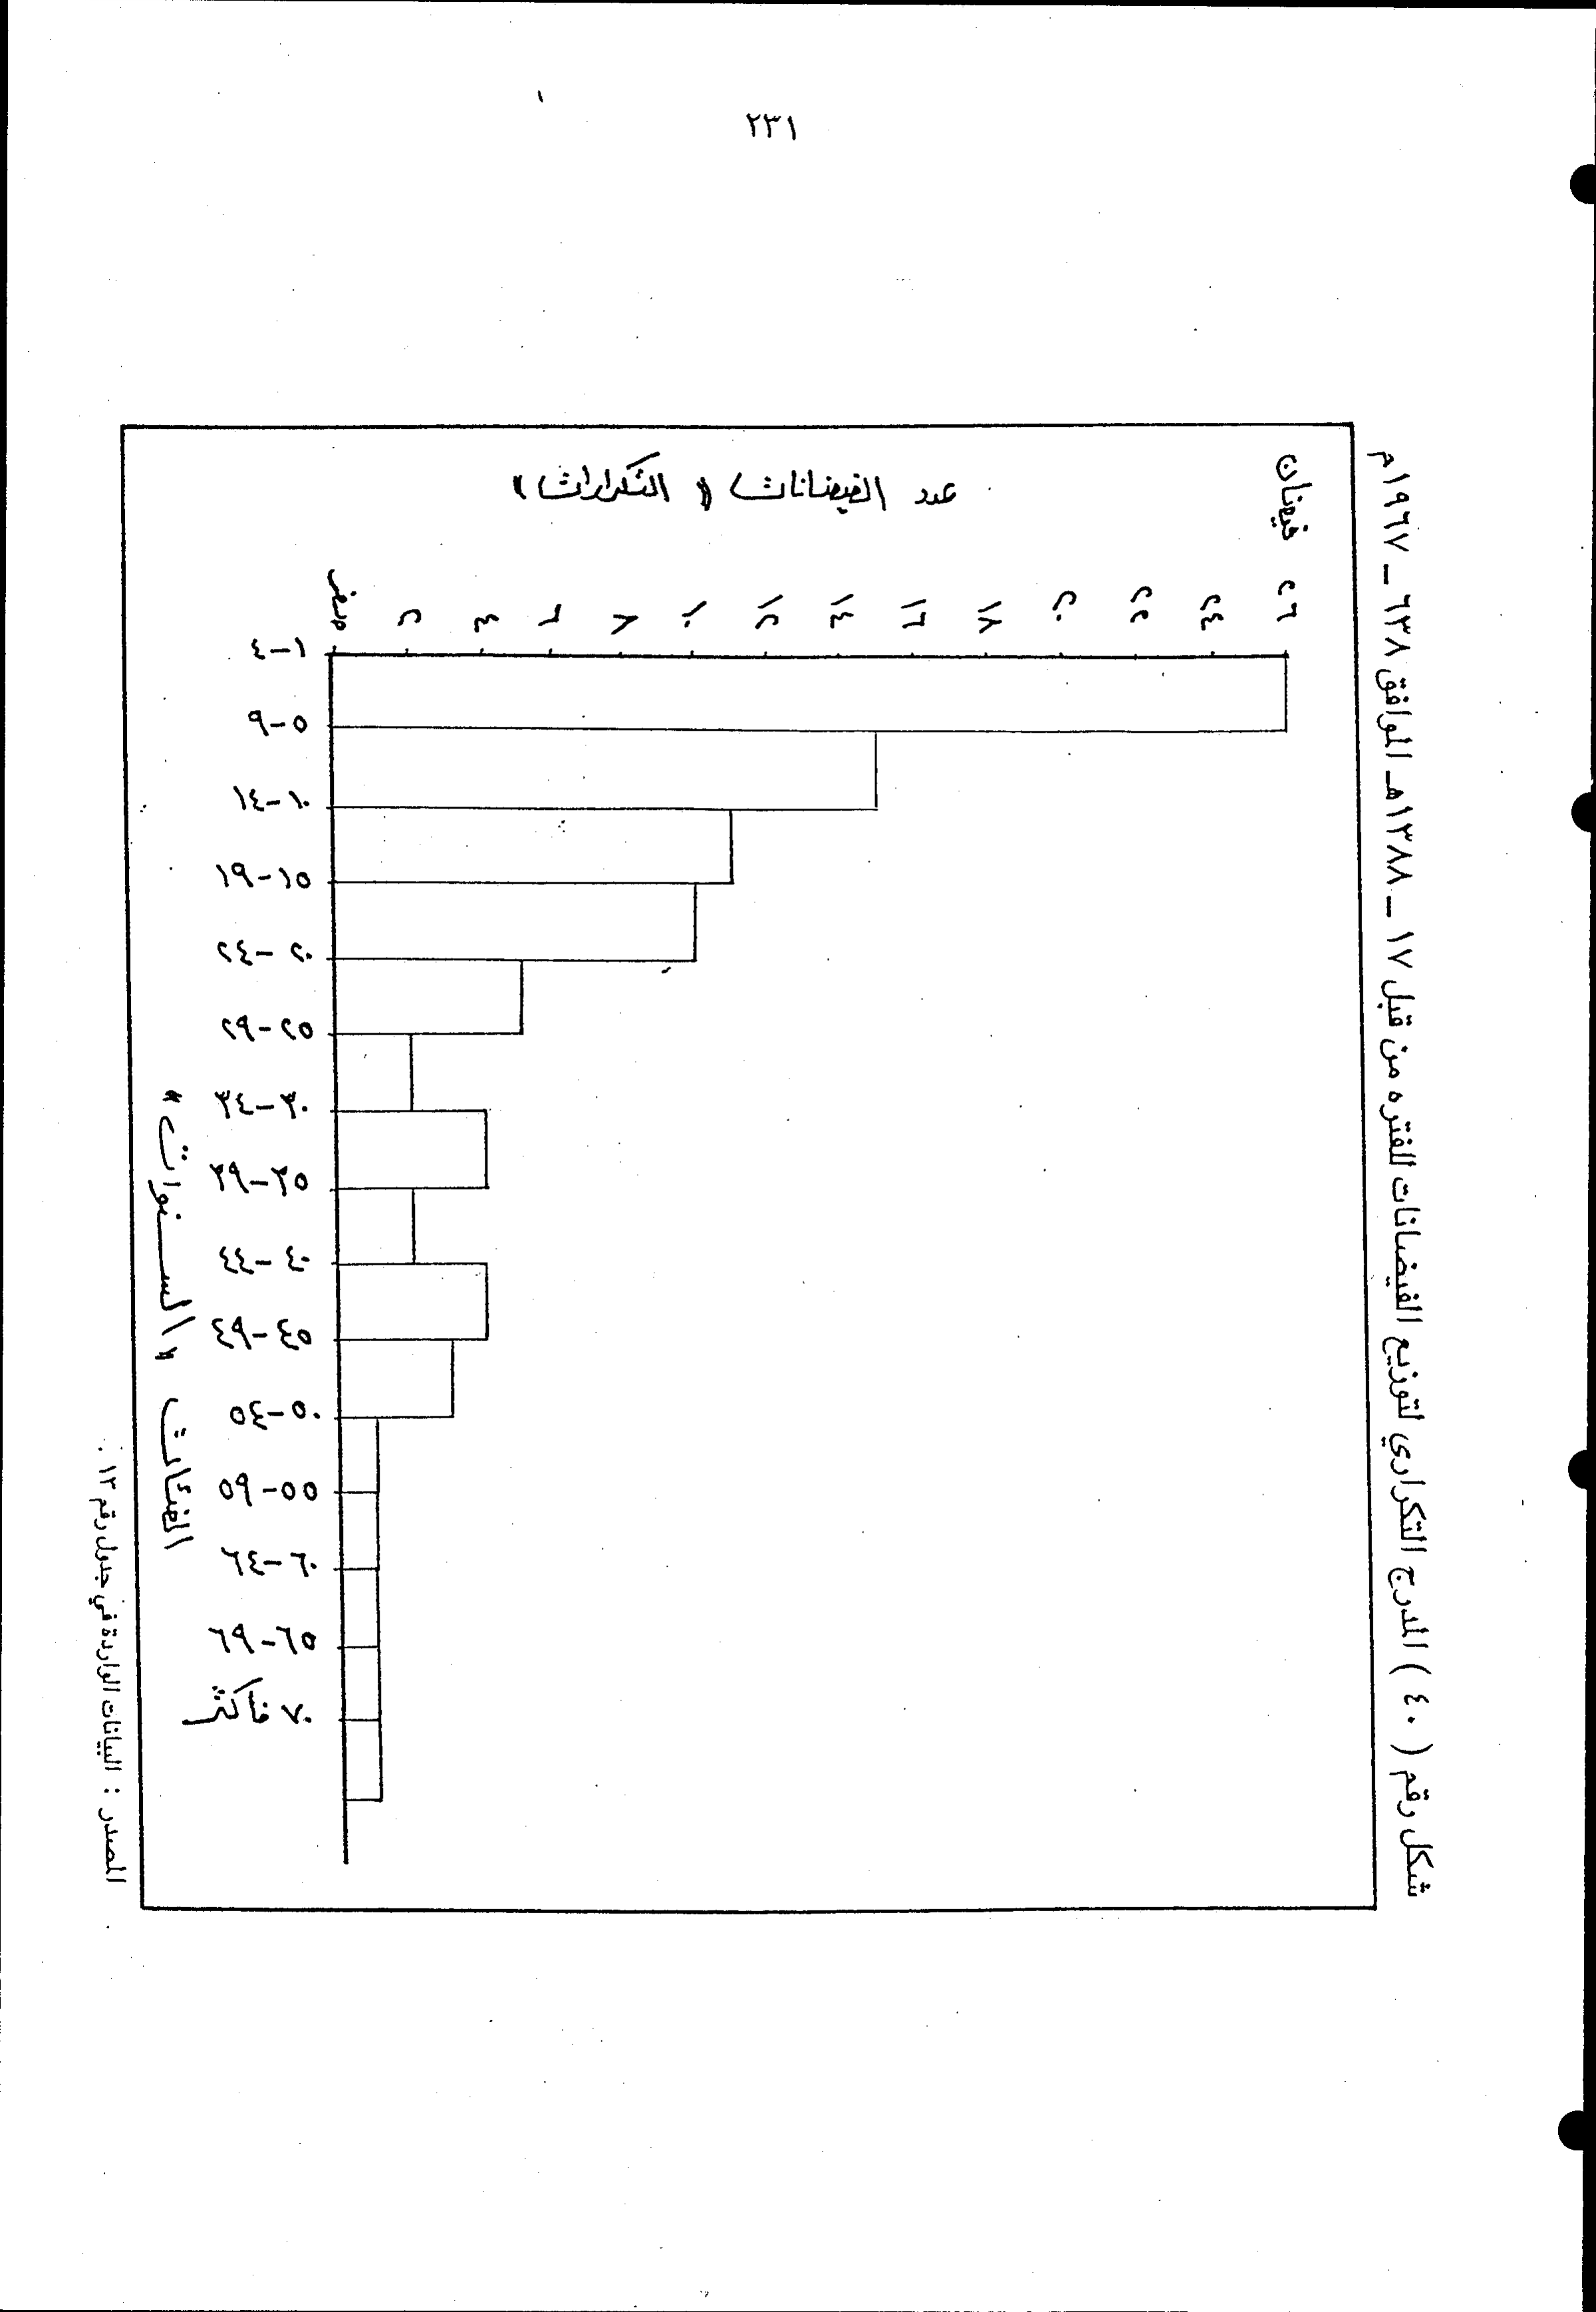 ٢٣١
شكل رقم ( ٤٠ ) المدرج التكراري لتوزيع الفيضانات للفتره من قبل ١٧ ــ ١٣٨٨هـ الموافق ٦٣٨ ــ ١٩٦٧م
عدد الفيضانات « التكرارات »
فيضان
٢٦
٢٤
٢٢
٢٠
١٨
١٦
١٤
١٢
١٠
٨
٦
٤
٢
صفر
١-٤
٥-٩
١٠-١٤
١٥-١٩
٢٠-٢٤
٢٥-٢٩
٣٠-٣٤
٣٥-٣٩
٤٠-٤٤
٤٥-٤٩
٥٠-٥٤
٥٥-٥٩
٦٠-٦٤
٦٥-٦٩
٧٠ فأكثر
الفئات " السنوات "
المصدر : البيانات الواردة في جدول رقم ١٣ .